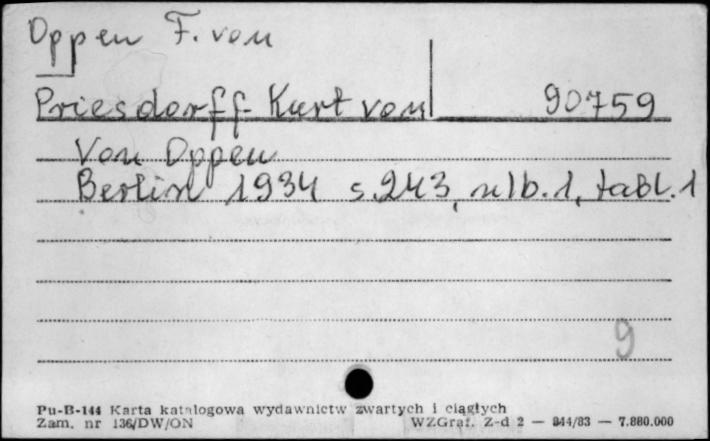 Oppen F. von
Priesdorff Kurt von 90759
Von Oppen
Berlin 1934 s. 243, nlb. 1, tabl. 1
9
Pu-B-144 Karta katalogowa wydawnictw zwartych i ciągłych
Zam. nr 136/DW/ON WZGraf. Z-d 2 — 844/83 — 7.880.000